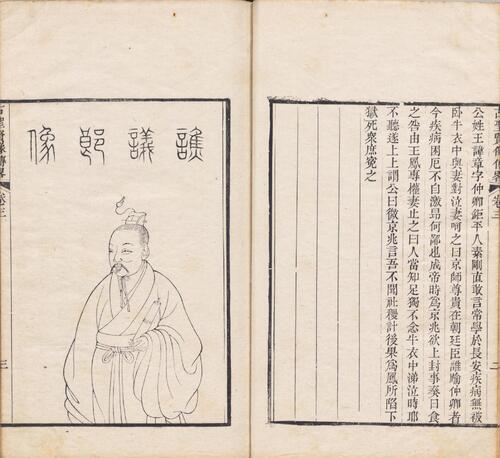 古聖賢像傳畧
卷三
二
公姓王諱章字仲卿鉅平人素剛直敢言常學於長安疾病無被
臥牛衣中與妻對泣妻呵之曰京師尊貴在朝廷臣誰踰仲卿者
今疾病困厄不自激昂何鄙也成帝時爲京兆欲上封事奏日食
之咎由王鳳專權妻止之曰人當知足獨不念牛衣中涕泣時耶
不聽遂上上謂公曰微京兆言吾不聞社稷計後果爲鳳所陷下
獄死衆庶寃之
譙議郎像
古聖賢像傳畧
卷三
三